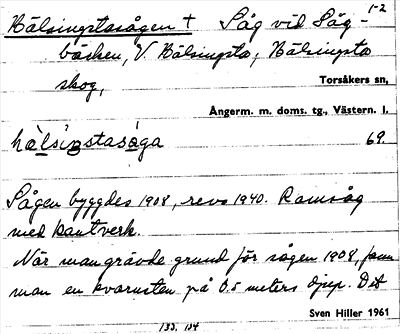 1-2
Hälsingstasågen † Såg vid Såg-
bäcken, V. Hälsingsta, Hälsingsta
skog,
Torsåkers sn,
Ångerm. m. doms. tg., Västern. l.
hälsiŋstasåga 69.
Sågen byggdes 1908, revs 1940. Ramsåg
med kantverk.
När man grävde grund för sågen 1908, fann
man en kvarnsten på 0.5 meters djup. Det
Sven Hiller 1961
133, 134